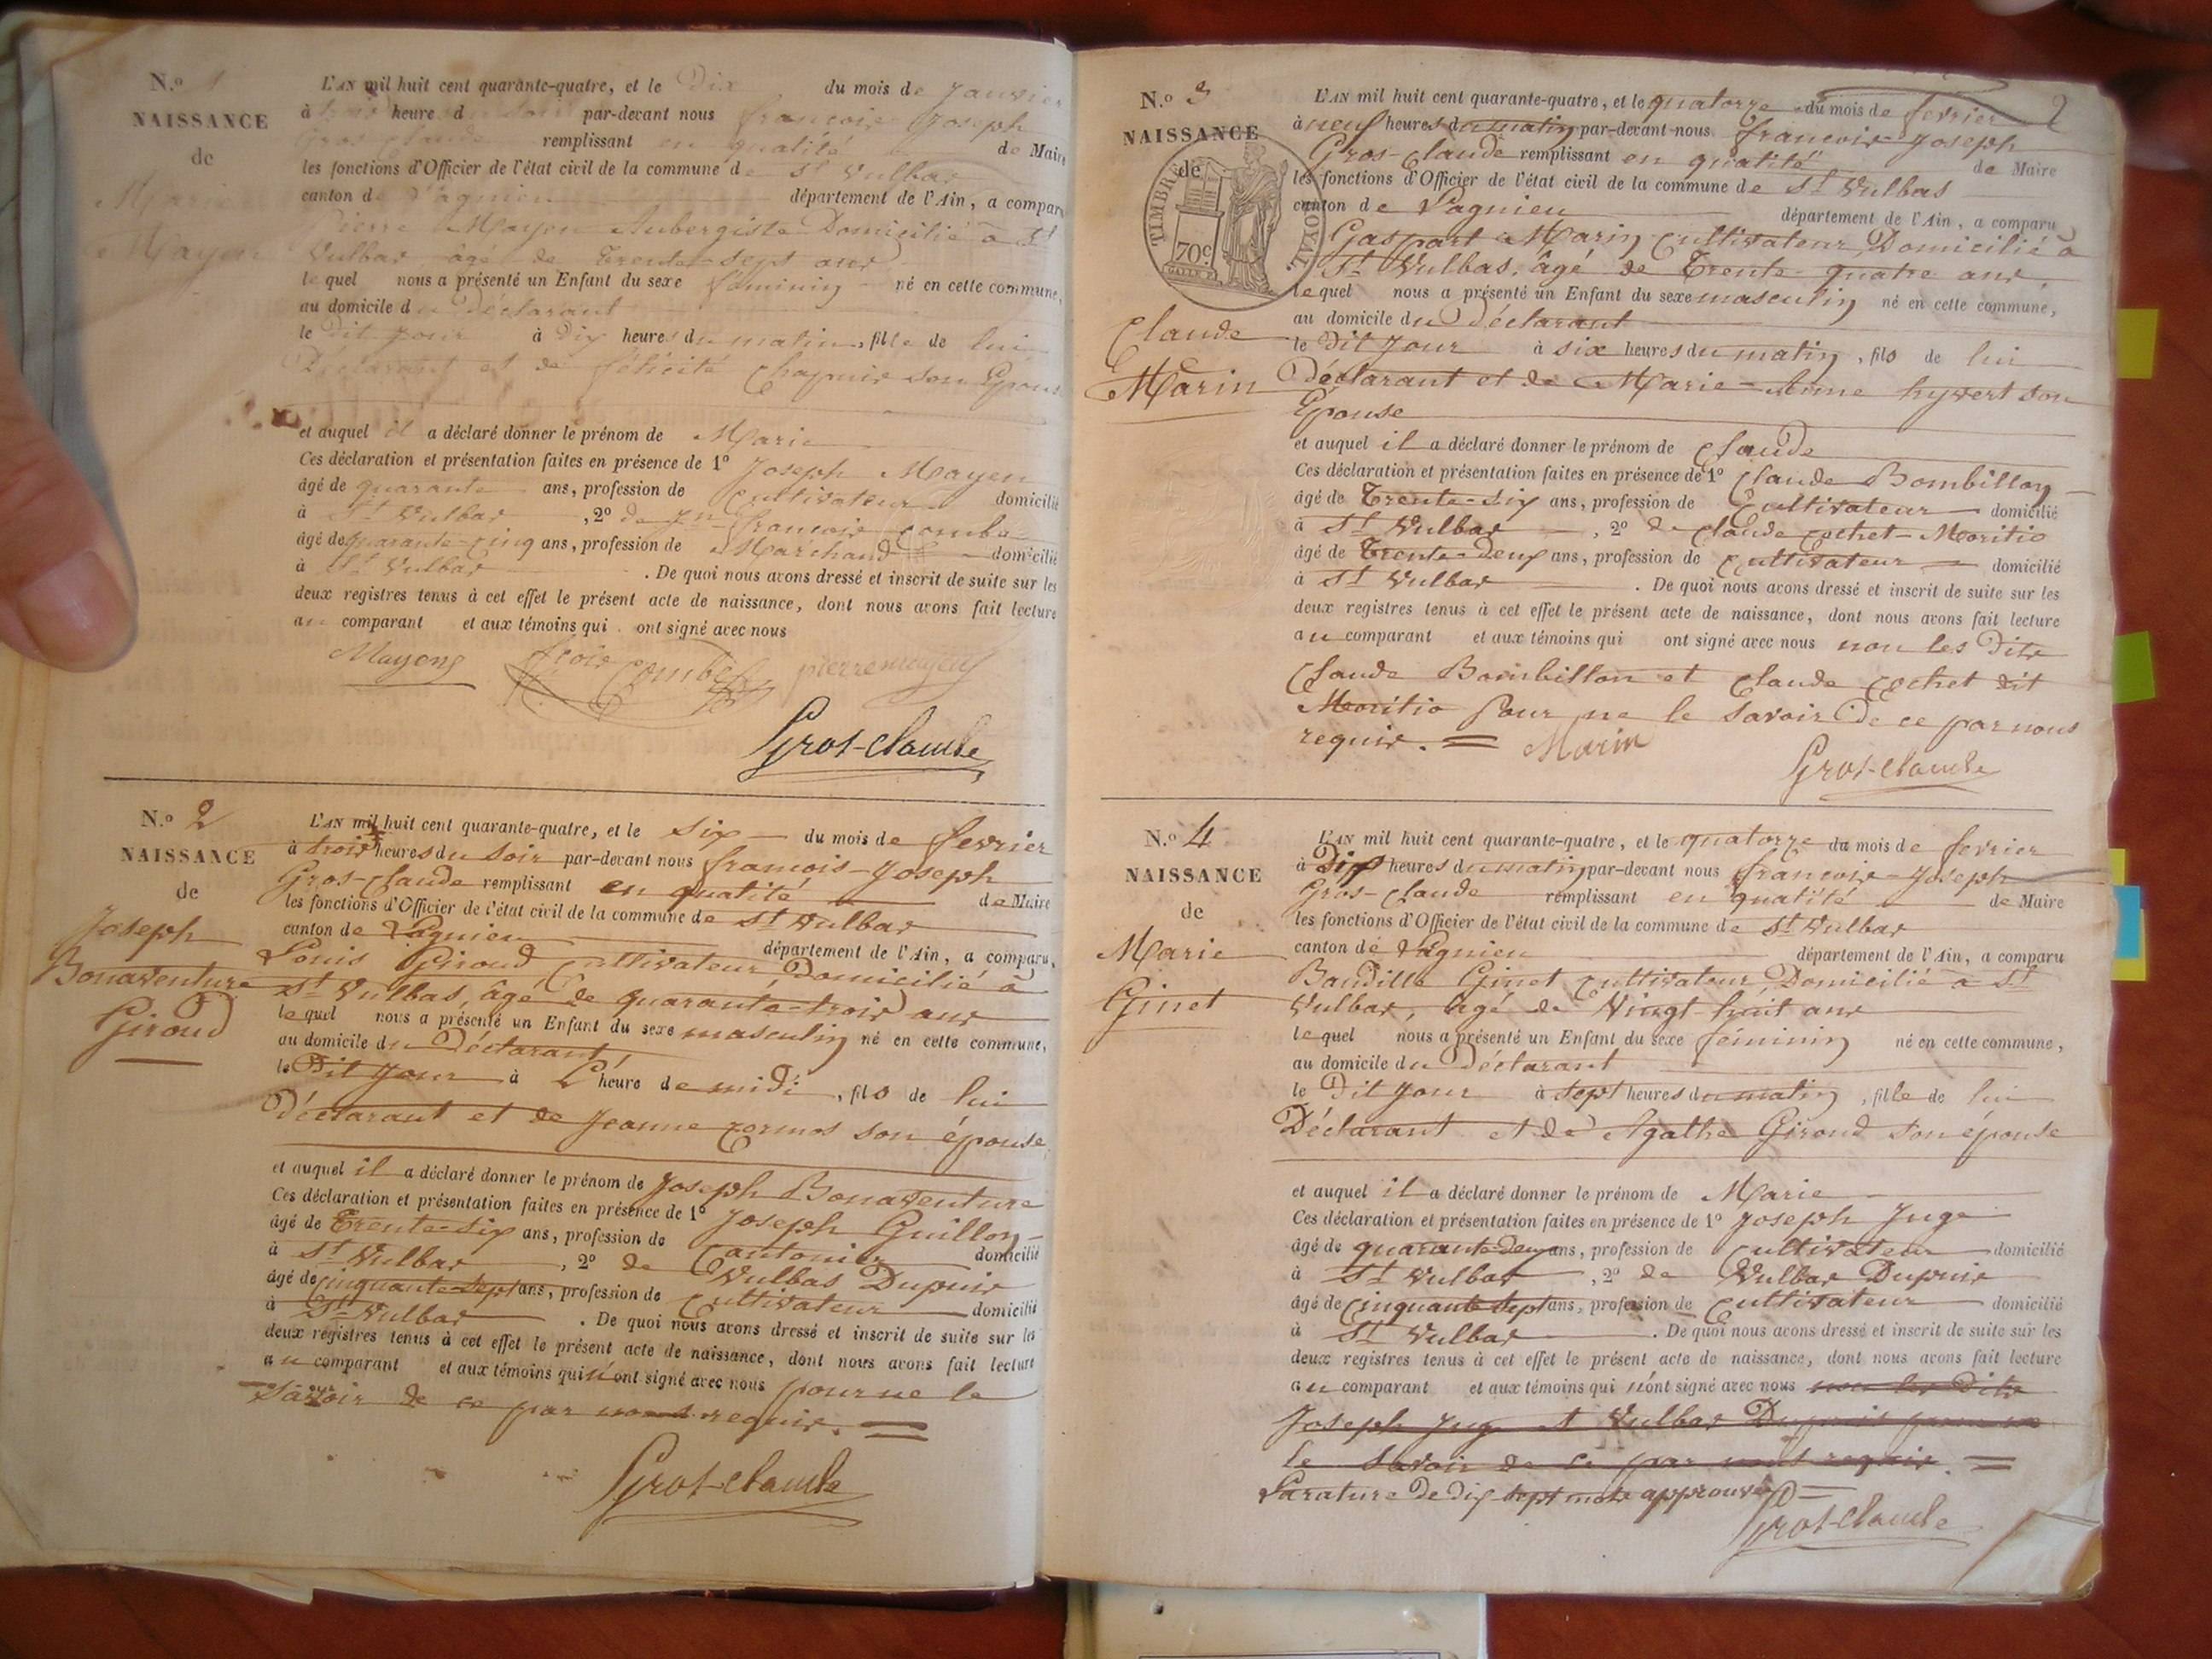 N.o 1
NAISSANCE
de
Marie
Mayen
L'AN mil huit cent quarante-quatre, et le Dix du mois de Janvier
à trois heure du soir par-devant nous francois Joseph
Gros-claude remplissant en qualité de Maire
les fonctions d'Officier de l'état civil de la commune de St Vulbas
canton de Lagnieu département de l'Ain, a comparu
Pierre Mayen Aubergiste Domicilié à St
Vulbas, âgé de Trente-sept ans
lequel nous a présenté un Enfant du sexe féminin né en cette commune,
au domicile du Déclarant
le Dit jour à Dix heures du matin, fille de lui
Déclarant et de félicité Chapuis son Épouse
et auquel il a déclaré donner le prénom de Marie
Ces déclaration et présentation faites en présence de 1o Joseph Mayen
âgé de quarante ans, profession de Cultivateur domicilié
à St Vulbas, 2o de francois Combe
âgé de quarante-cinq ans, profession de Marchand domicilié
à St Vulbas. De quoi nous avons dressé et inscrit de suite sur les
deux registres tenus à cet effet le présent acte de naissance, dont nous avons fait lecture
au comparant et aux témoins qui ont signé avec nous
Mayen fçois Combe pierre mayen
Gros-claude
N.o 2
NAISSANCE
de
Joseph
Bonaventure
Giroud
L'AN mil huit cent quarante-quatre, et le six du mois de fevrier
à trois heures du soir par-devant nous francois-Joseph
Gros-claude remplissant en qualité de Maire
les fonctions d'Officier de l'état civil de la commune de St Vulbas
canton de Lagnieu département de l'Ain, a comparu,
Louis Giroud Cultivateur, Domicilié à
St Vulbas, âgé de quarante-trois ans
lequel nous a présenté un Enfant du sexe masculin né en cette commune,
au domicile du Déclarant
le Dit Jour à L'heure de midi, fils de lui
Déclarant et de Jeanne Cormos son épouse
et auquel il a déclaré donner le prénom de Joseph Bonaventure
Ces déclaration et présentation faites en présence de 1o Joseph Guillon
âgé de Trente-six ans, profession de Cantonier domicilié
à St Vulbas, 2o de Vulbas Dupuis
âgé de cinquante-sept ans, profession de Cultivateur domicilié
à St Vulbas. De quoi nous avons dressé et inscrit de suite sur les
deux registres tenus à cet effet le présent acte de naissance, dont nous avons fait lecture
au comparant et aux témoins qui n'ont signé avec nous pour ne le
savoir de ce par nous requis.
Gros-claude
2
N.o 3
NAISSANCE
de
TIMBRE ROYAL
70c
Claude
Marin
L'AN mil huit cent quarante-quatre, et le quatorze du mois de fevrier
à neuf heures du matin par-devant nous francois-Joseph
Gros-claude remplissant en qualité de Maire
les fonctions d'Officier de l'état civil de la commune de St Vulbas
canton de Lagnieu département de l'Ain, a comparu
Gaspart Marin Cultivateur, Domicilié à
St Vulbas, âgé de Trente-quatre ans
lequel nous a présenté un Enfant du sexe masculin né en cette commune,
au domicile du Déclarant
le Dit Jour à six heures du matin, fils de lui
Déclarant et de Marie-Anne hyvert son
Épouse
et auquel il a déclaré donner le prénom de Claude
Ces déclaration et présentation faites en présence de 1o Claude Bombillon
âgé de Trente-six ans, profession de Cultivateur domicilié
à St Vulbas, 2o de Claude Cochet-Moritio
âgé de Trente-Deux ans, profession de Cultivateur domicilié
à St Vulbas. De quoi nous avons dressé et inscrit de suite sur les
deux registres tenus à cet effet le présent acte de naissance, dont nous avons fait lecture
au comparant et aux témoins qui ont signé avec nous non les Dits
Claude Bombillon et Claude Cochet dit
Moritio pour ne le savoir De ce par nous
requis. Marin
Gros-claude
N.o 4
NAISSANCE
de
Marie
Ginet
L'AN mil huit cent quarante-quatre, et le quatorze du mois de fevrier
à Dix heures du matin par-devant nous francois-Joseph
Gros-claude remplissant en qualité de Maire
les fonctions d'Officier de l'état civil de la commune de St Vulbas
canton de Lagnieu département de l'Ain, a comparu
Baudille Ginet Cultivateur, Domicilié à St
Vulbas, âgé de Vingt-huit ans
lequel nous a présenté un Enfant du sexe féminin né en cette commune,
au domicile du Déclarant
le Dit Jour à sept heures du matin, fille de lui
Déclarant et de Agathe Giroud son épouse
et auquel il a déclaré donner le prénom de Marie
Ces déclaration et présentation faites en présence de 1o Joseph Juge
âgé de quarante-deux ans, profession de Cultivateur domicilié
à St Vulbas, 2o de Vulbas Dupuis
âgé de cinquante sept ans, profession de Cultivateur domicilié
à St Vulbas. De quoi nous avons dressé et inscrit de suite sur les
deux registres tenus à cet effet le présent acte de naissance, dont nous avons fait lecture
au comparant et aux témoins qui n'ont signé avec nous non les Dits
Joseph Juge et Vulbas Dupuis pour ne
le savoir de ce par nous requis.
Larature De dix sept mots approuvée
Gros-claude